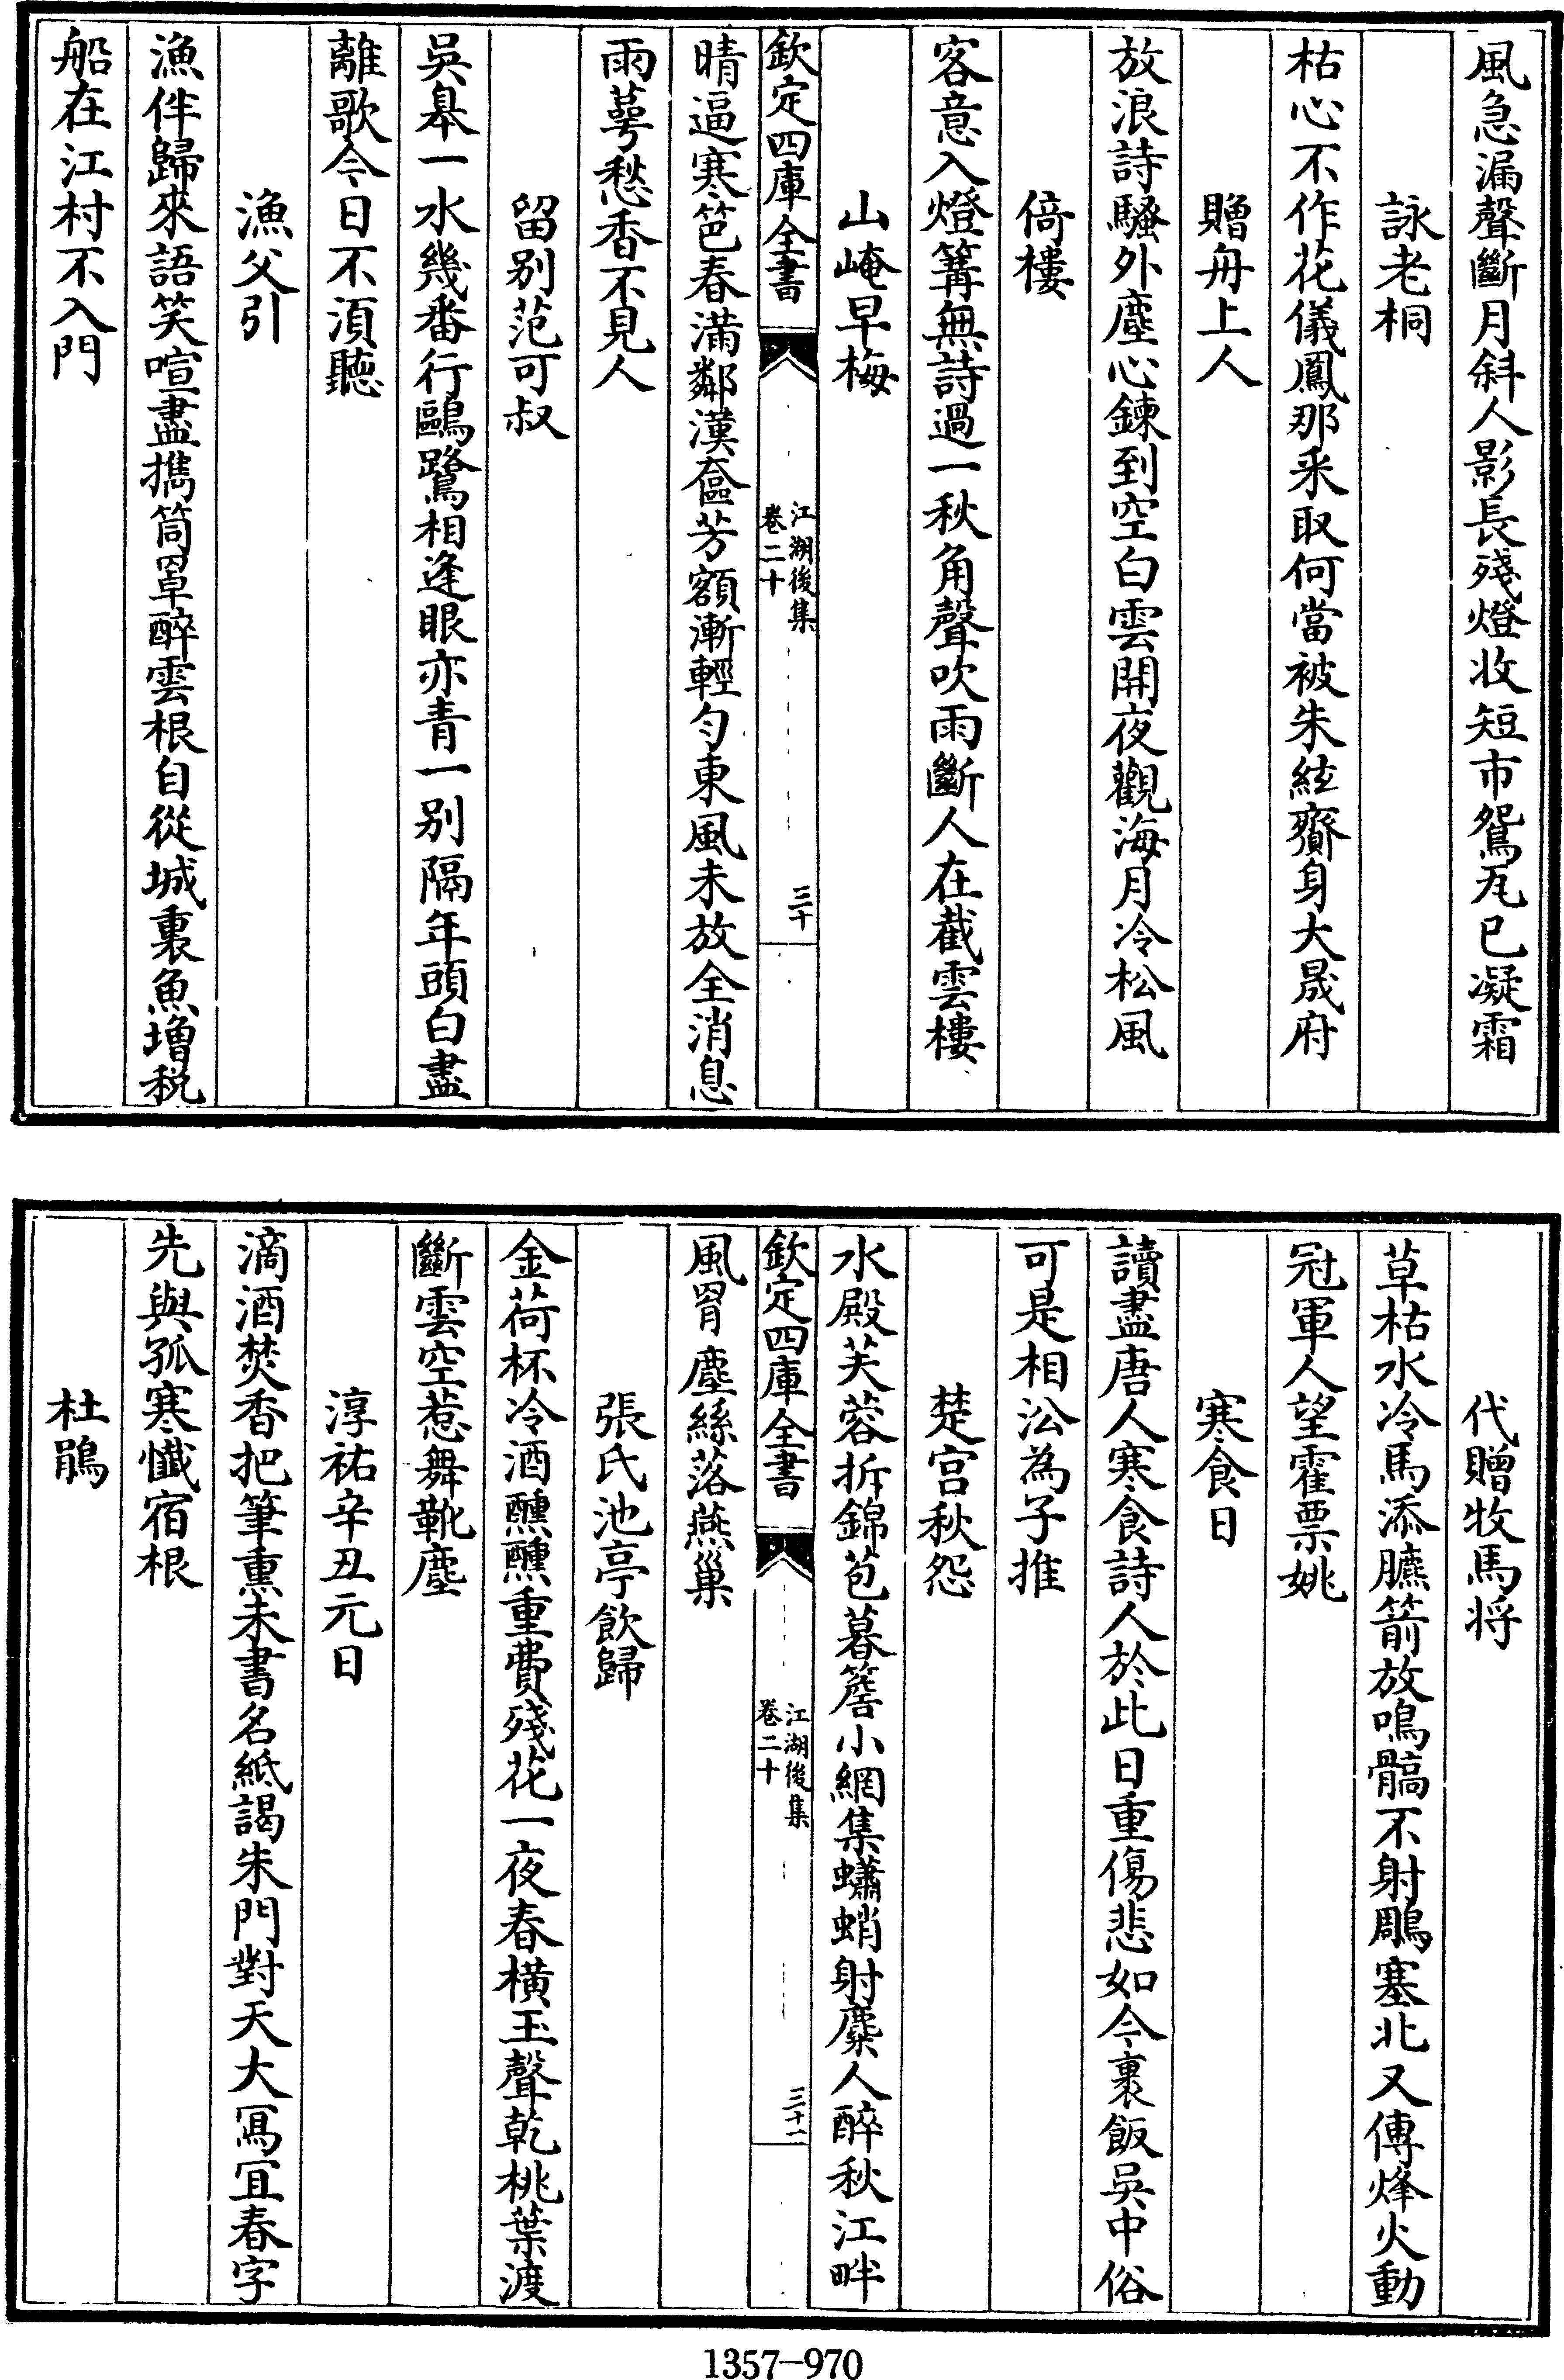 風急漏聲斷月斜人影長殘燈收短市鴛瓦已凝霜
詠老桐
枯心不作花儀鳳那采取何當被朱絃齎身大晟府
贈舟上人
放浪詩騷外塵心鍊到空白雲開夜觀海月冷松風
倚樓
客意入燈篝無詩過一秋角聲吹雨斷人在截雲樓
山崦早梅
欽定四庫全書
江湖後集
卷二十
三十
晴逼寒笆春滿鄰漢奩芳額漸輕勻東風未放全消息
雨萼愁香不見人
留别范可叔
吳皋一水幾番行鷗鷺相逢眼亦青一别隔年頭白盡
離歌今日不湏聽
漁父引
漁伴歸來語笑喧盡攜筒罩醉雲根自從城裏魚增税
船在江村不入門
代贈牧馬将
草枯水冷馬添臕箭放鳴髇不射鵰塞北又傳烽火動
冠軍人望霍票姚
寒食日
讀盡唐人寒食詩人於此日重傷悲如今裹飯吳中俗
可是相㳂為子推
楚宫秋怨
水殿芙蓉拆錦苞暮簷小網集蠨蛸射麋人醉秋江畔
欽定四庫全書
江湖後集
卷二十
三十一
風罥塵絲落燕巢
張氏池亭飲歸
金荷杯冷酒醺醺重費殘花一夜春横玉聲乾桃葉渡
斷雲空惹舞靴塵
淳祐辛丑元日
滴酒焚香把筆熏未書名紙謁朱門對天大寫冝春字
先與孤寒懺宿根
杜鵑
1357-970